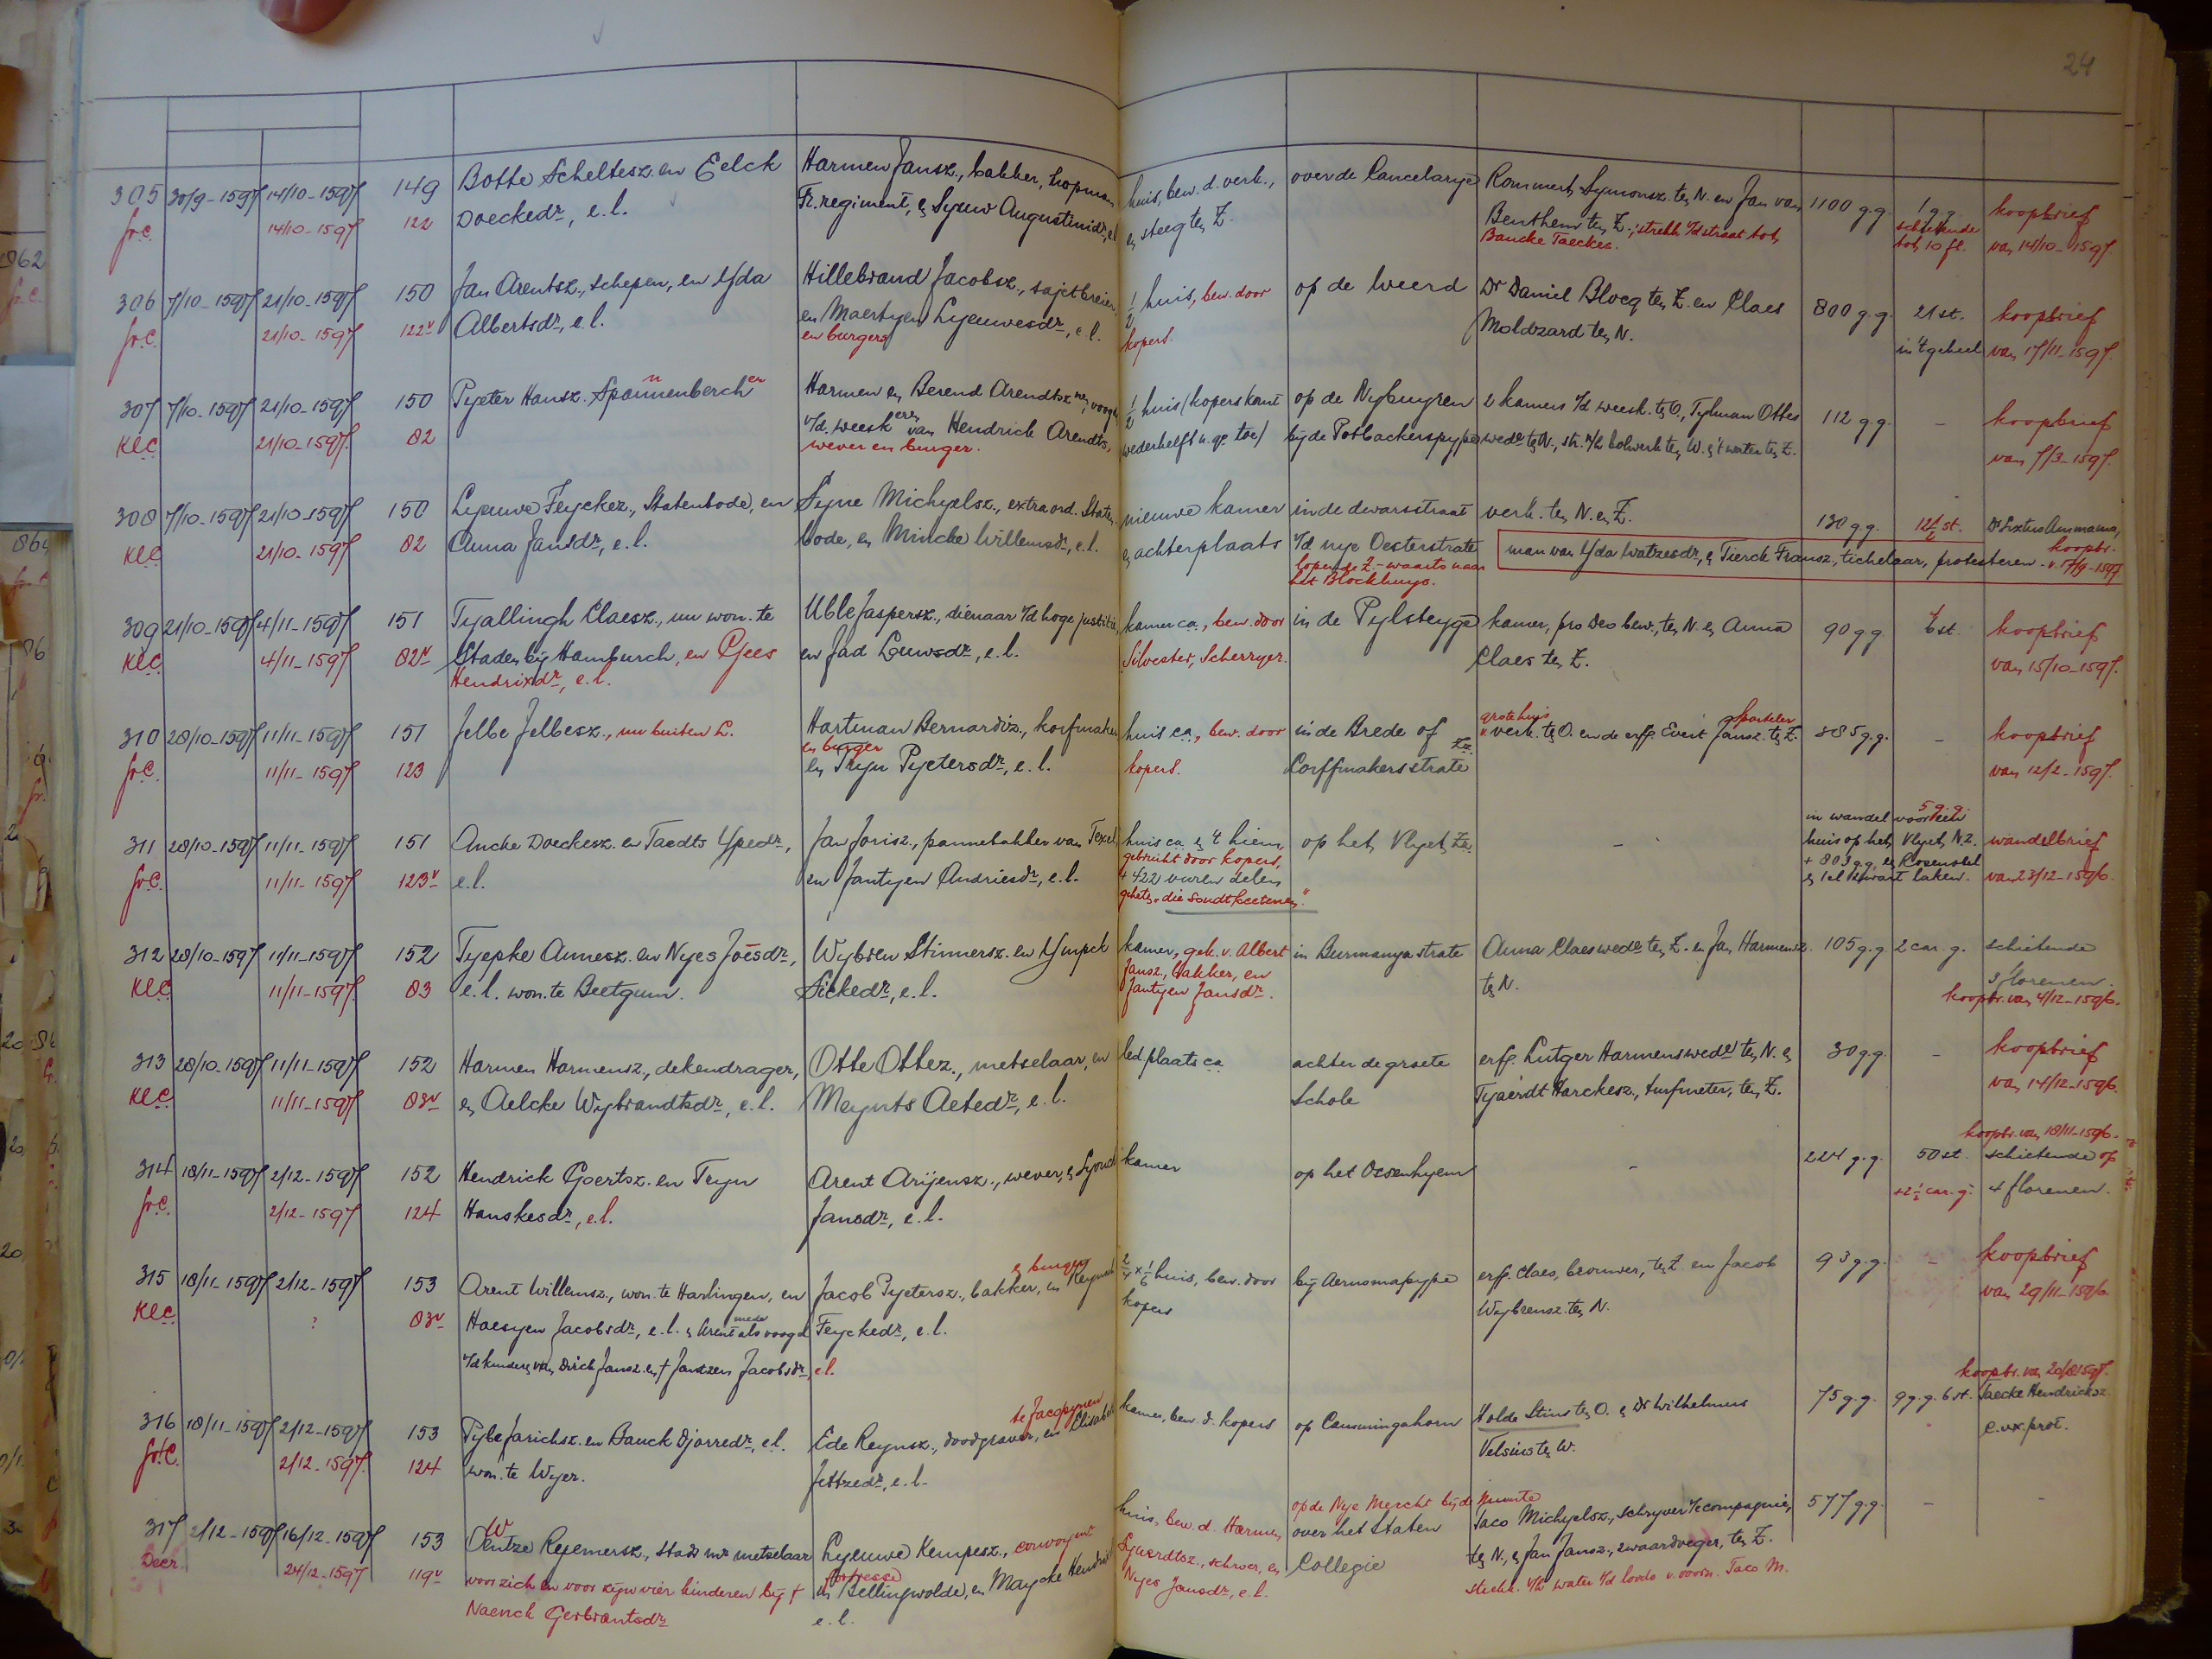 24
305 30/9-1597 14/10-1597 149 Botte Scheltesz. en Eelck Harmen Jansz., bakker, hopman huis, bew. d. verk., over de Cancelarye Rommert Symonsz. ten N. en Jan van 1100 g.g. 1 g.g. koopbrief
Gr.C. 14/10-1597 122 Doeckedr, e.l. Fr. regiment, en Syuw Augustinidr, e.l. en steeg ten Z. Benthem ten Z.; strekk. v/d straat tot schietende van 14/10-1597.
Baucke Taeckes. tot 10 fl.
306 7/10-1597 21/10-1597 150 Jan Arentsz., schepen, en Yda Hillebrand Jacobsz., sajetbreier, 1/2 huis, bew. door op de Weerd Dr Daniel Blocq ten Z. en Claes 800 g.g. 21 st. koopbrief
Gr.C. 21/10-1597 122v Albertsdr, e.l. en Maertyen Lyeuwesdr, e.l. kopers. Moldzard ten N. in 't geheel van 17/11-1597.
en burgers
307 7/10-1597 21/10-1597 150 Pyeter Hansz. Spannenberch en Harmen en Berend Arendtsz nen, voogden 1/2 huis (kopers kant op de Nyburyren 2 kamers v/d weesk. ten O, Tylman Ottes 112 g.g. - koopbrief
Kl.C. 21/10-1597. 82 v/d. weesk eren van Hendrick Arendts, wederhelft u. qe. toe) bij de Potbackerspype wede ten N., str. a/h bolwerk ten W. en 't water ten Z. van 7/3-1597.
wever en burger.
308 7/10-1597 21/10-1597 150 Lyeuwe Feyckez., Statenbode, en Syne Michyelsz., extraord. Staten- nieuwe kamer in de dwarsstraat verk. ten N. en Z. 130 g.g. 12 1/2 st. Dr Sixtus Ammama,
Kl.C. 21/10-1597 82 Anna Jansdr, e.l. bode, en Mincke Willemsdr, e.l. en achterplaats v/d nye Oesterstrate man van Yda Watzesdr, en Tierck Fransz, tichelaar, protesteren. koopbr. v. 17/9-1597
lopende Z.-waarts naar
het Blockhuys.
309 21/10-1597 4/11-1597 151 Tyallingh Claesz., nu won. te Uble Jaspersz., dienaar v/d hoge justitie, kamer ca., bew. door in de Pylsteyge kamer, pro Deo bew., ten N. en Anna 90 g.g. st. koopbrief
Kl.C. 4/11-1597 82v Staden bij Hamburch, en Gees en Jad Louwsdr, e.l. Silvester, Scherryer. Claes ten Z. van 15/10-1597.
Hendrixdr, e.l.
310 28/10-1597 11/11-1597 151 Jelbe Jelbesz., nu buiten L. Hartman Bernardiz., korfmaker huis ca., bew. door in de Brede of grote huis v. verk. ten O. en de erfg. Evert Jansz. ten Z. 385 g.g. - koopbrief
Gr.C. 11/11-1597 123 en burger en Tryn Pyetersdr, e.l. kopers. Corffmakersstrate Zz. van 12/2-1597.
311 28/10-1597 11/11-1597 151 Ancke Doeckesz. en Taedts Ypedr, Jan Jorisz., pannebakker van Texel, huis ca. en 't hiem, op het Vlyet, Zz. - in wandel voor een 5 g.g. huis op het Vlyet, N.z. wandelbrief
Gr.C. 11/11-1597 123v e.l. en Jantyen Andriesdr, e.l. gebruikt door kopers, + 803 g.g. en Rosenobel van 23/12-1596.
+ 422 vuren delen en 1 el zwart laken.
geheten "die Soudtkeetenen".
312 28/10-1597 11/11-1597 152 Tyepke Annesz. en Nyes Joësdr, Wybren Stinnersz. en Ympck kamer, geh. v. Albert in Burmanya strate Anna Claes wede ten Z. en Jan Harmensz. 105 g.g. 2 car. g. schietende
Kl.C. 11/11-1597. 83 e.l. won. te Beetgum. Sickedr, e.l. Jansz., bakker, en ten N. 3 florenen.
Jantyen Jansdr. koopbr. van 4/12-1596.
313 28/10-1597 11/11-1597 152 Harmen Harmensz., dekendrager, Otte Ottez., metselaar, en led. plaats ca. achter de groete erfg. Lutger Harmens wede ten N. en 30 g.g. - koopbrief
Kl.C. 11/11-1597 83v en Aelcke Wybrandtsdr, e.l. Meynts Aetedr, e.l. Schole Tyaerdt Harckesz., turfmeter, ten Z. van 14/12-1596.
koopbr. van 18/11-1596.
314 18/11-1597 2/12-1597 152 Hendrick Goertsz. en Tryn Arent Arijensz., wever, en Sjouck kamer op het Ossenhyem - 224 g.g. 50 st. schietende op
Gr.C. 2/12-1597 124 Hanskesdr, e.l. Jansdr, e.l. +2 1/2 car. g. 4 florenen.
315 18/11-1597 2/12-1597 153 Arent Willemsz., won. te Harlingen, en Jacob Pyetersz., bakker, en burger en Reynsck 2/4 x 1/6 huis, bew. door bij Aernsmapype erfg. Claes, brouwer, ten Z. en Jacob 93 g.g. - koopbrief
Kl.C. ? 83v Haesyen Jacobsdr, e.l. en Arent mede als voogd Feyckedr, e.l. kopers Wybrensz. ten N. van 29/11-1596.
v/d kinderen van Dirck Jansz. en † Jantzen Jacobsdr, e.l.
koopbr. van
316 18/11-1597 2/12-1597 153 Tybe Jarichsz. en Bauck Djarredr, e.l. Ede Reynsz., doodgraver, te Jacopynen en Elisabeth kamer, bew. d. kopers op Cammingahorn Holde Stins ten O. en Dr Wilhelmus 75 g.g. 9 g.g. 6 st. Taecke Hendricksz.
Gr.C. 2/12-1597. 124 won. te Wyer. Jettzedr, e.l. Velsius ten W. e.ux. prot.
317 2/12-1597 16/12-1597 153 Wentze Reyemersz., stads mr metselaar Lyeuwe Kempesz., convoyent huis, bew. d. Harmen op de Nye Merckt bij de Munte over het Staten Taco Michyelsz., schryver v/e compagnie, 577 g.g. - -
Decr. 24/12-1597 119v voor zich en voor zijn vier kinderen bij † fortresse in Bellingwolde, en Maycke Hendriks Syuerdtsz., schroer, en Collegie ten N., en Jan Jansz., zwaardveger, ten Z.
Naenck Gerbrantsdr e.l. Nyes Jansdr, e.l. strekk. v/h water v/d loods v. voorn. Taco M.